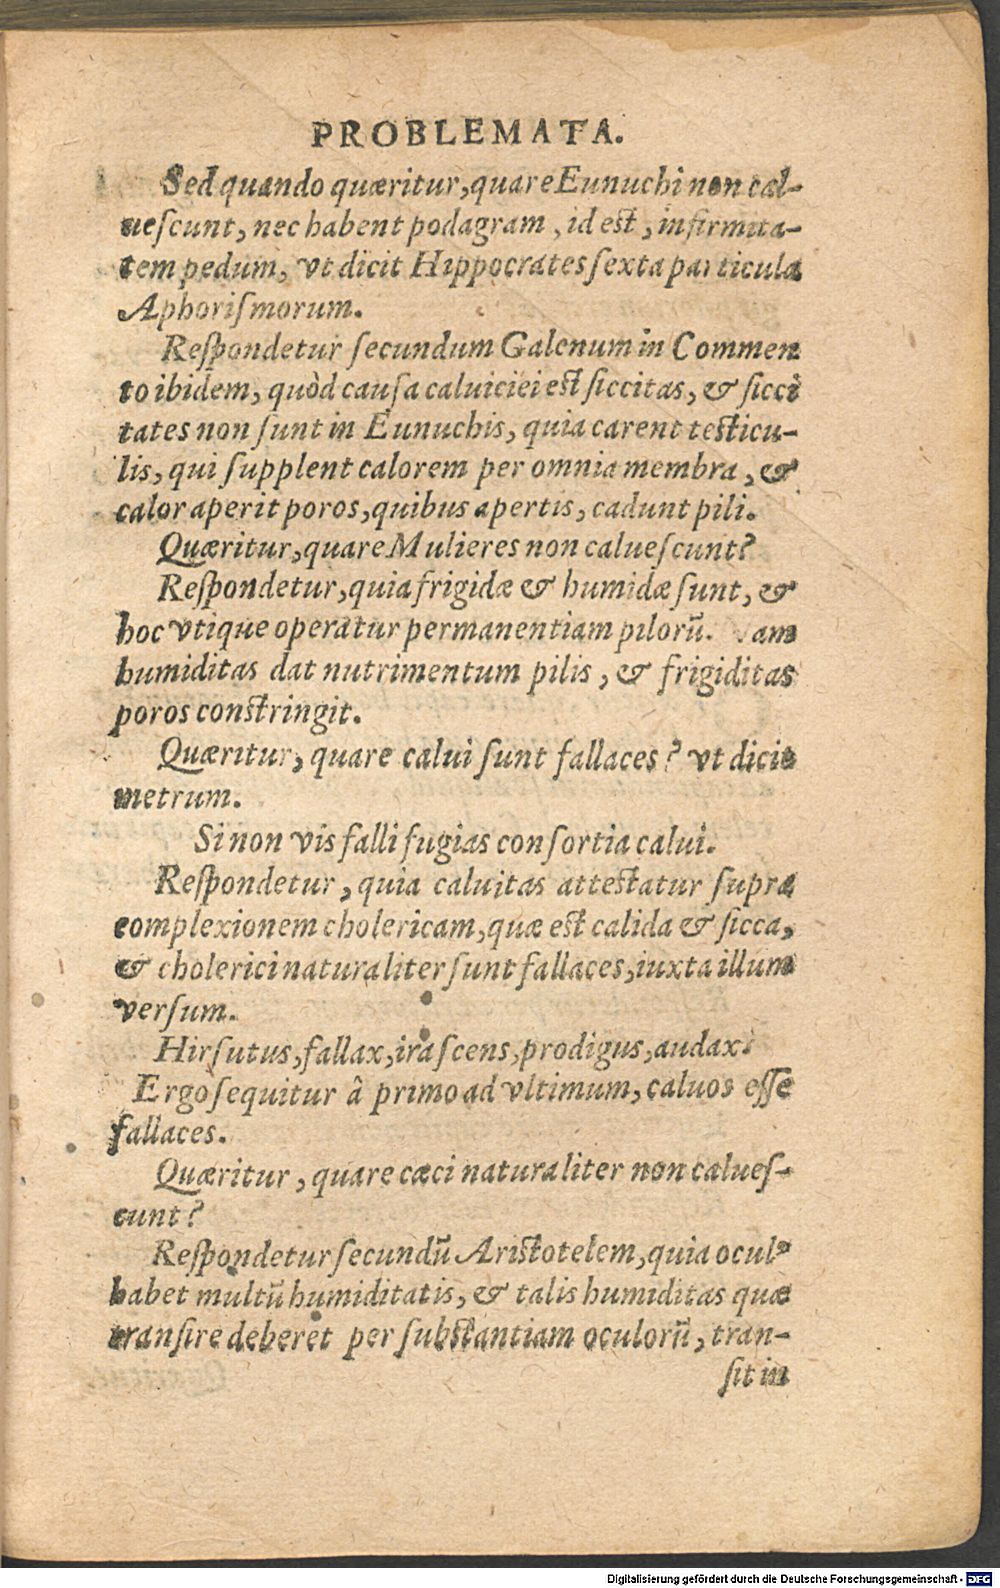 PROBLEMATA.
Sed quando quæritur, quare Eunuchi non cal-
ueſcunt, nec habent podagram, id est, infirmita-
tem pedum, vt dicit Hippocrates ſexta particula
Aphoriſmorum.
Reſpondetur ſecundum Galenum in Commen
to ibidem, quòd cauſa caluiciei est ſiccitas, & ſicci
tates non ſunt in Eunuchis, quia carent testicu-
lis, qui ſupplent calorem per omnia membra, &
calor aperit poros, quibus apertis, cadunt pili.
Quæritur, quare Mulieres non calueſcunt?
Reſpondetur, quia frigidæ & humidæ ſunt, &
hoc vtique operatur permanentiam pilorū. am
humiditas dat nutrimentum pilis, & frigiditas
poros constringit.
Quæritur, quare calui ſunt fallaces? vt dicit
metrum.
Si non vis falli fugias conſortia calui.
Reſpondetur, quia caluitas attestatur ſupra
complexionem cholericam, quæ est calida & ſicca,
& cholerici naturaliter ſunt fallaces, iuxta illum
verſum.
Hirſutus, fallax, iraſcens, prodigus, audax:
Ergo ſequitur â primo ad vltimum, caluos eſſe
fallaces.
Quæritur, quare cæci naturaliter non calueſ-
cunt?
Reſpondetur ſecundū Aristotelem, quia ocul9
habet multū humiditatis, & talis humiditas quæ
tranſire deberet per ſubstantiam oculorū, tran-
ſit in
Digitalisierung gefördert durch die Deutsche Forschungsgemeinschaft - DFG